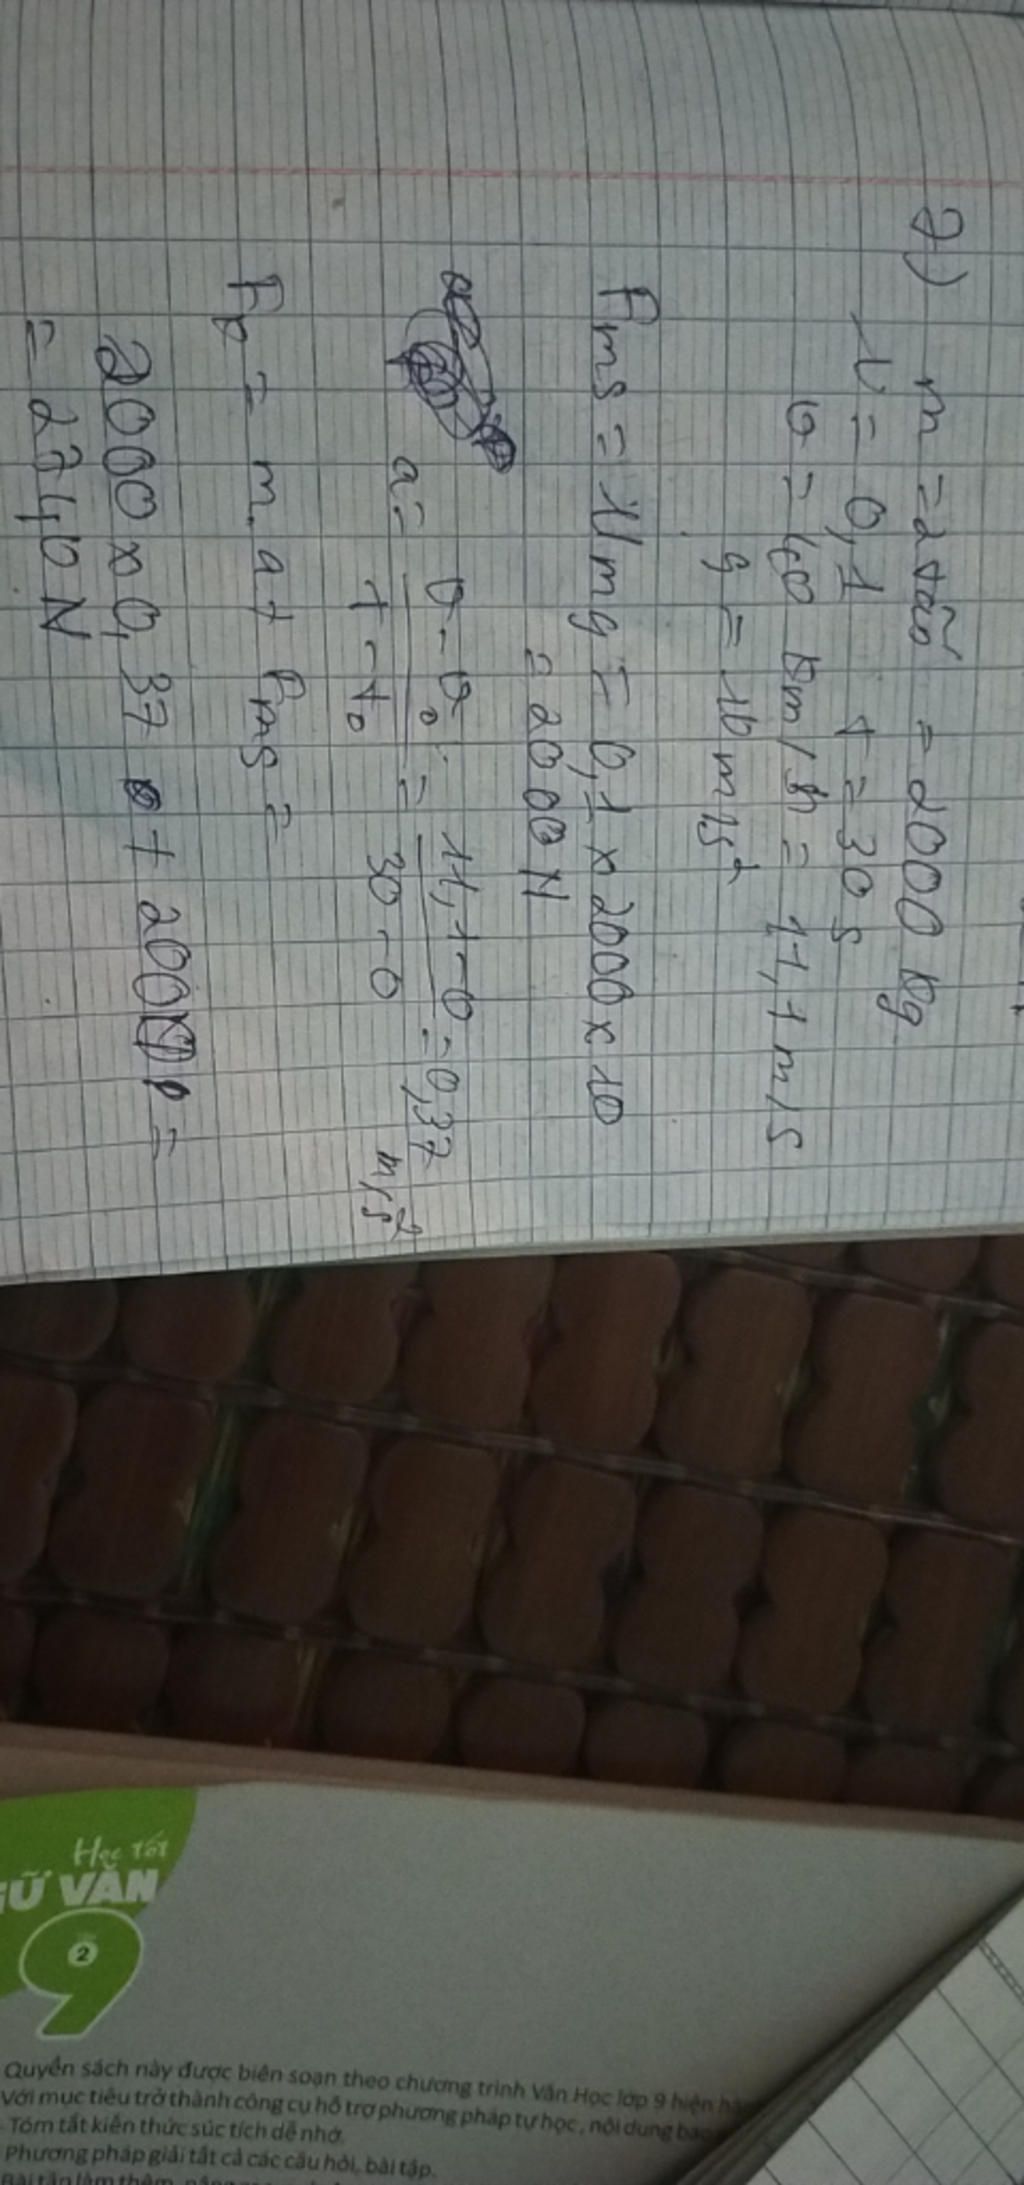 7) m = 2 tấn = 2000 kg
μ = 0,1 t = 30 s
v = 40 km/h = 11,1 m/s
g = 10 m/s²
Fms = μmg = 0,1 x 2000 x 10
= 2000 N
a = v - v₀ / t - t₀ = 11,1 - 0 / 30 - 0 = 0,37 m/s²
Fk = m.a + Fms =
2000 x 0,37 + 2000 =
= 2740 N
Học tốt
Ữ VĂN
9
2
Quyển sách này được biên soạn theo chương trình Văn Học lớp 9 hiện
Với mục tiêu trở thành công cụ hỗ trợ phương pháp tự học, nội dung bao
- Tóm tắt kiến thức súc tích dễ nhớ.
Phương pháp giải tất cả các câu hỏi, bài tập.